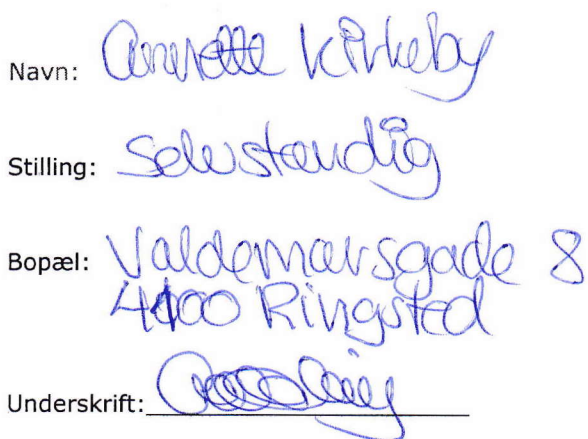 Navn: Annette Kirkeby
Stilling: Selvstændig
Bopæl: Valdemarsgade 8
4100 Ringsted
Underskrift: